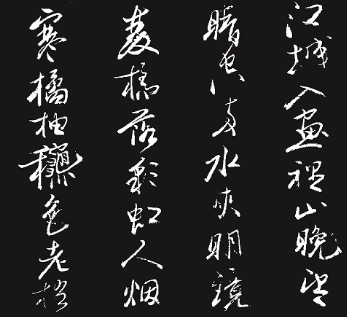 江城入畫裡山晚望
晴空兩水夾明鏡
雙橋落彩虹人烟
寒橘柚龝色老梧